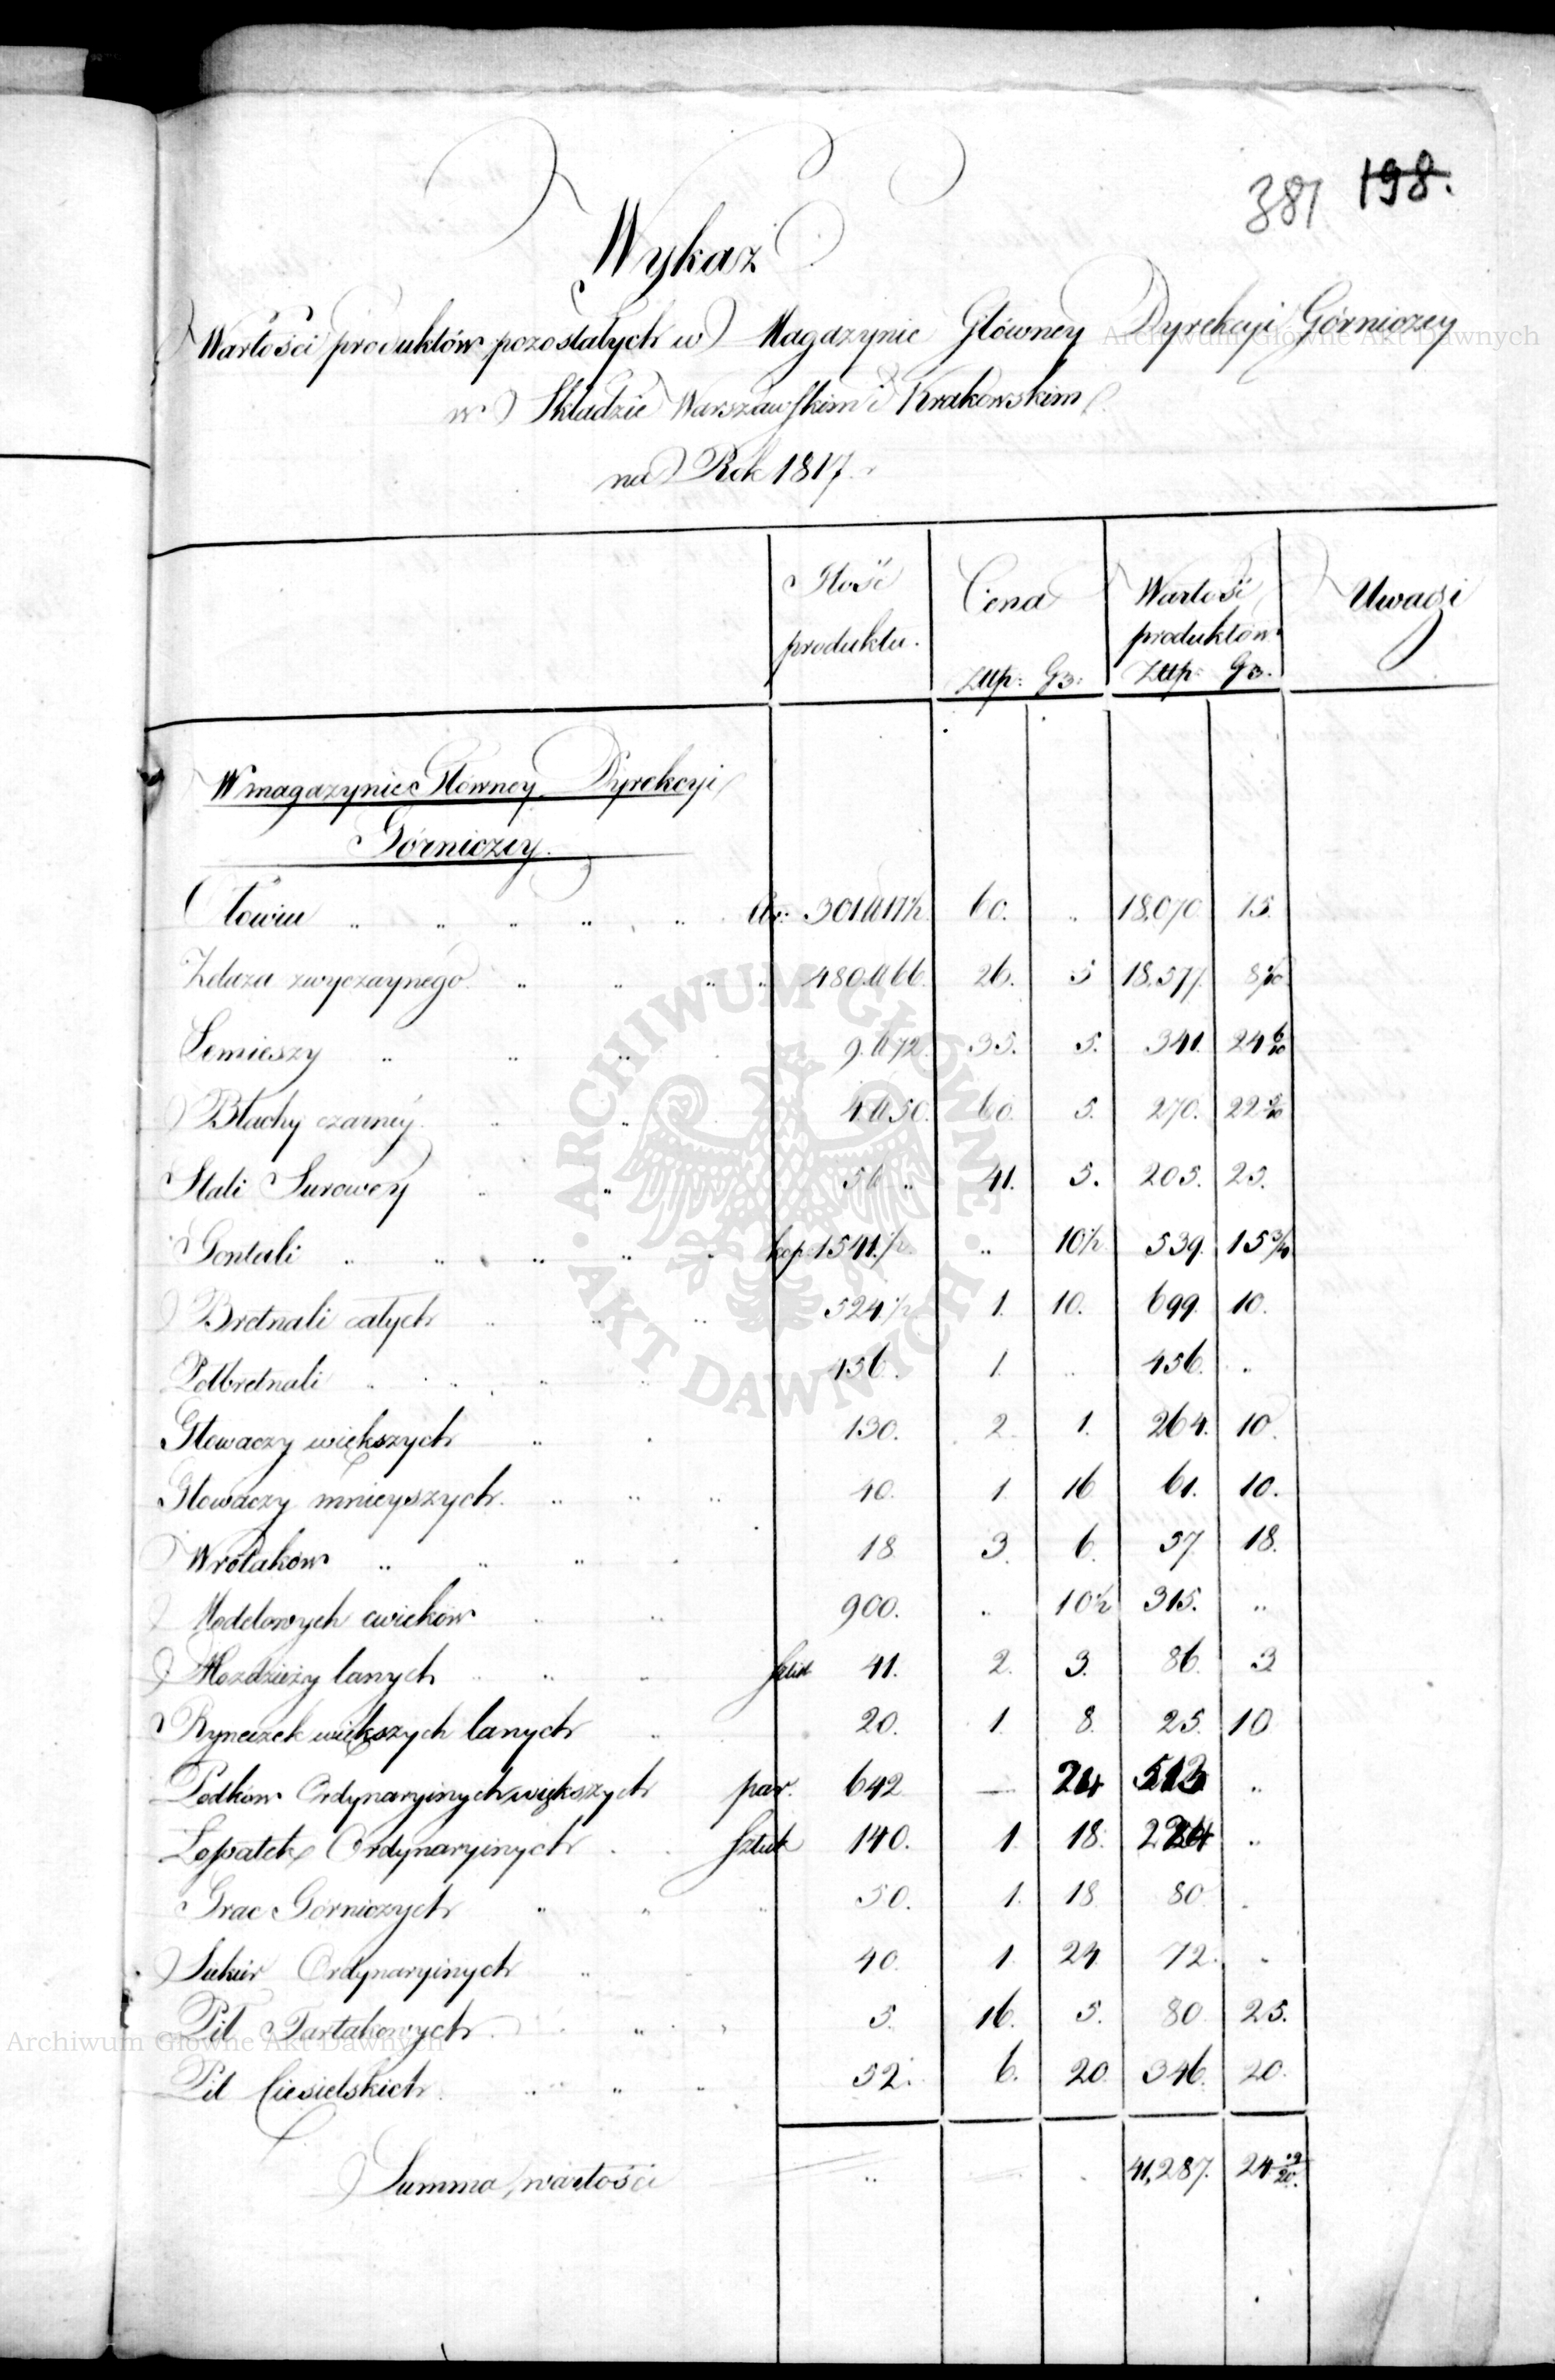 381 198.
Wykaz
Wartości produktów pozostałych w Magazynie Główney Dyrekcyi Górniczey
w Składzie Warszawskim i Krakowskim
na Rok 1817.
Ilość produktu. Cena Wartość produktów Uwagi
Złłp: Gr: Złłp: Gr:
W magazynie Główney Dyrekcyi
Górniczey.
Ołowiu 301 17½ 60. " 18,070 15.
Żelaza zwyczaynego 480 66. 26. 5 18,577
Lemieszy 9. 72. 35. 5. 341. 24 6/10
Blachy czarney 4. 50. 60. 5. 270. 22 5/10
Stali Surowey 41. 5. 205. 25.
Gontali kop 1541.½. " 10½ 539. 15
Bretnali całych 524.½ 1. 10. 699. 10.
Półbretnali 456. 1. " 456. "
Głowaczy większych 130. 2. 1. 264. 10.
Głowaczy mnieyszych 40. 1. 16 61. 10.
Wrótaków 18 3. 6. 57 18.
Modelowych cwieków 900. " 10½ 315. "
Moździeży lanych sztuk 41. 2. 3. 86. 3
Ryneczek większych lanych 20. 1. 8. 25. 10
Podków Ordynaryinych większych par. 642 — 24 513 "
Łopatek Ordynaryinych sztuk 140. 1. 18. 224 "
Grac Górniczych 50. 1. 18 80.
Siekier Ordynaryinych 40. 1. 24 72.
Pił Tartakowych 5. 16. 5. 80. 25.
Pił Ciesielskich 52. 6. 20 346. 20.
Summa wartości " 41,287. 24 19/20.
ARCHIWUM GŁÓWNE
AKT DAWNYCH
Archiwum Główne Akt Dawnych
Archiwum Główne Akt Dawnych